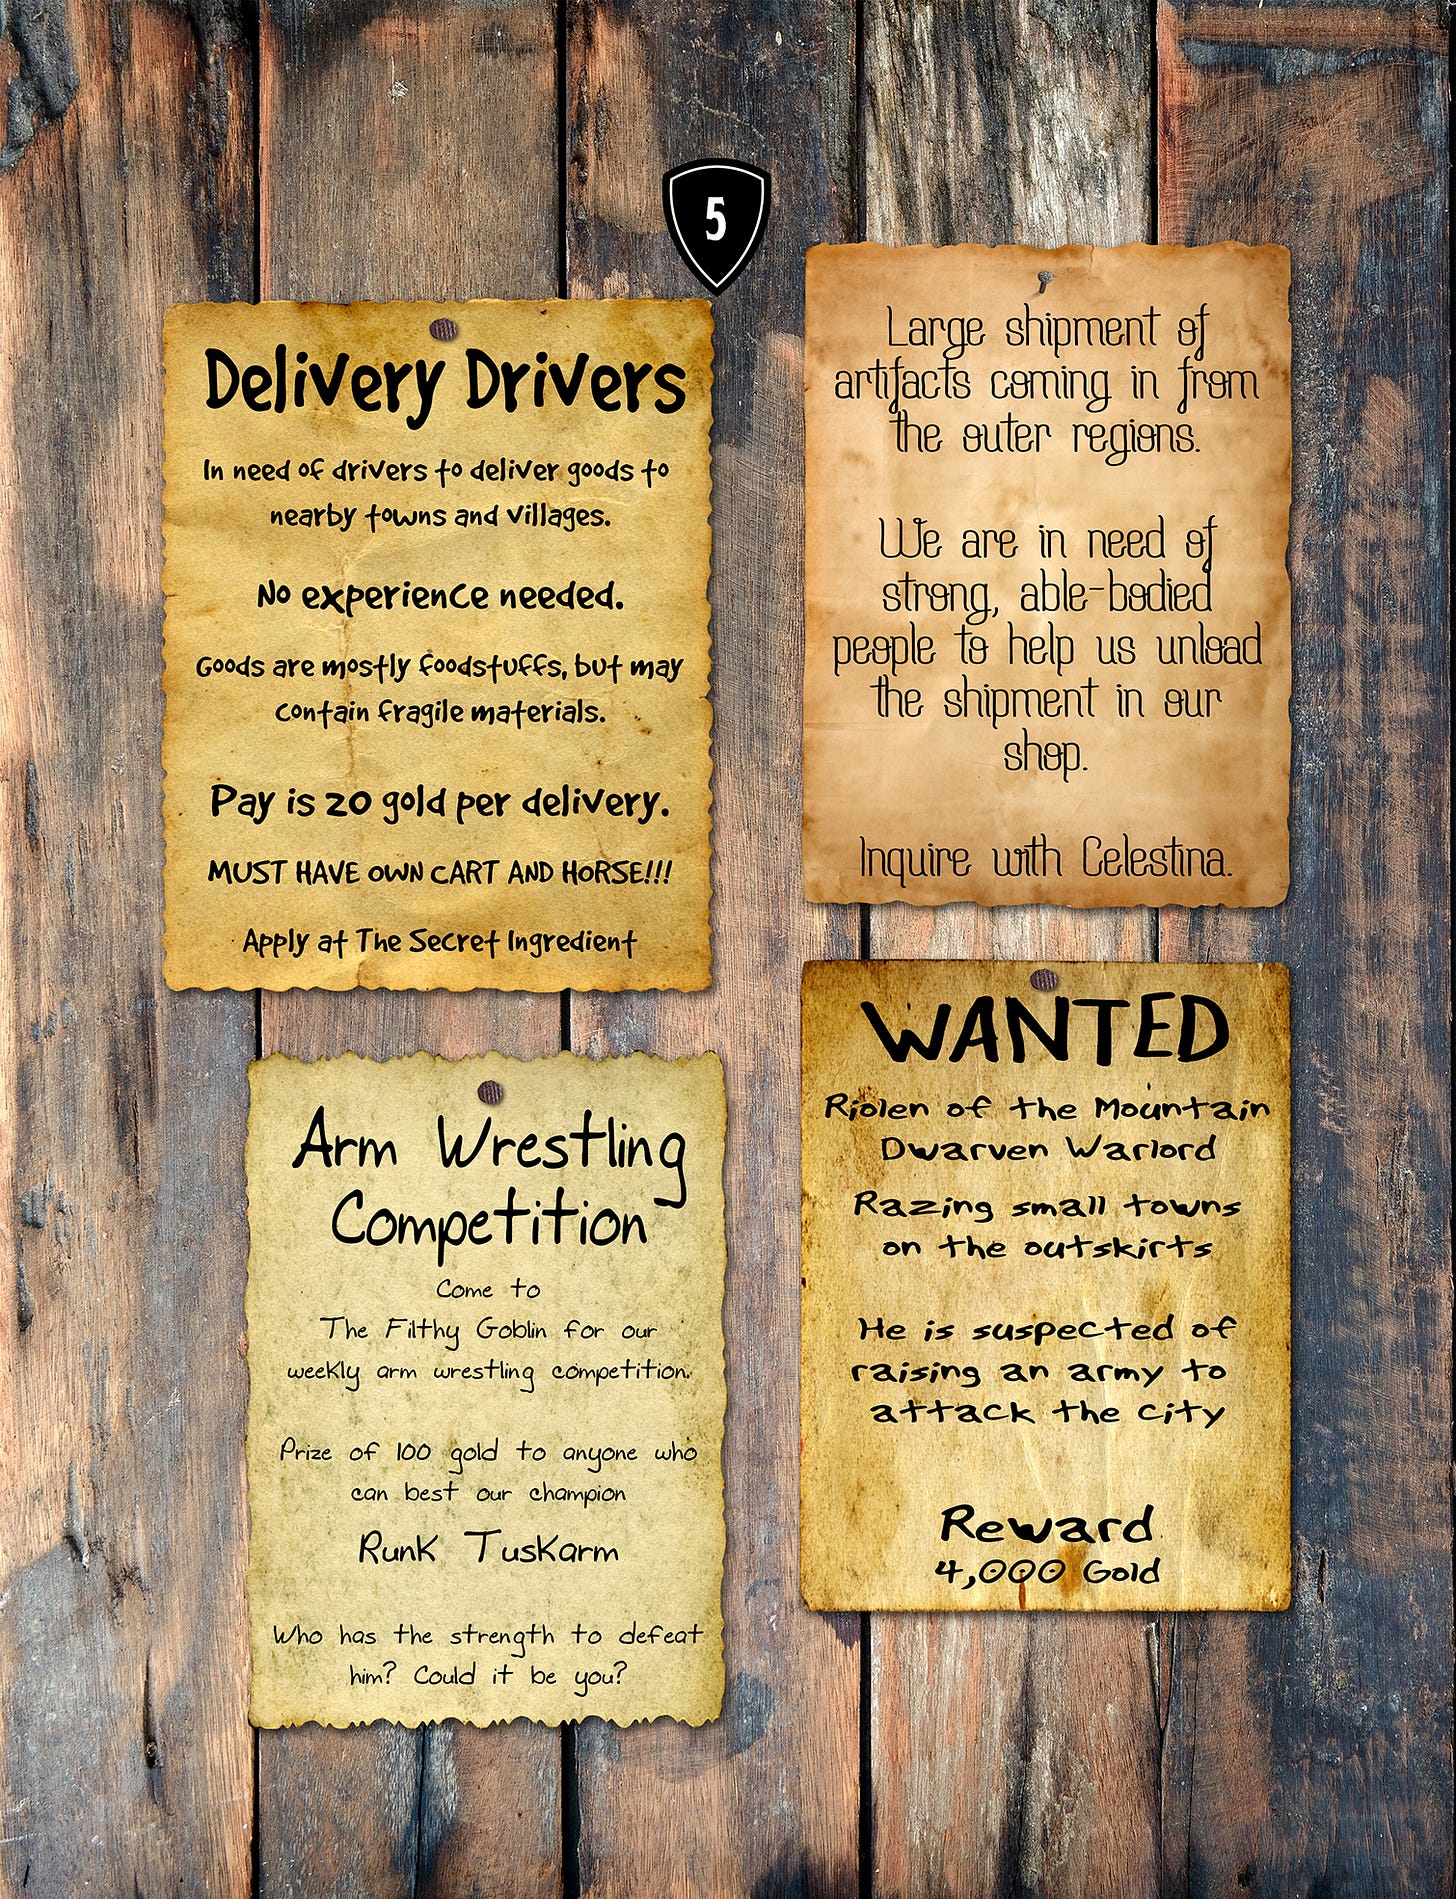 5
Delivery Drivers
In need of drivers to deliver goods to
nearby towns and villages.
No experience needed.
Goods are mostly foodstuffs, but may
contain fragile materials.
Pay is 20 gold per delivery.
MUST HAVE OWN CART AND HORSE!!!
Apply at The Secret Ingredient
Large shipment of
artifacts coming in from
the outer regions.
We are in need of
strong, able-bodied
people to help us unload
the shipment in our
shop.
Inquire with Celestina.
Arm Wrestling
Competition
Come to
The Filthy Goblin for our
weekly arm wrestling competition.
Prize of 100 gold to anyone who
can best our champion
Runk Tuskarm
Who has the strength to defeat
him? Could it be you?
WANTED
Riolen of the Mountain
Dwarven Warlord
Razing small towns
on the outskirts
He is suspected of
raising an army to
attack the city
Reward
4,000 Gold